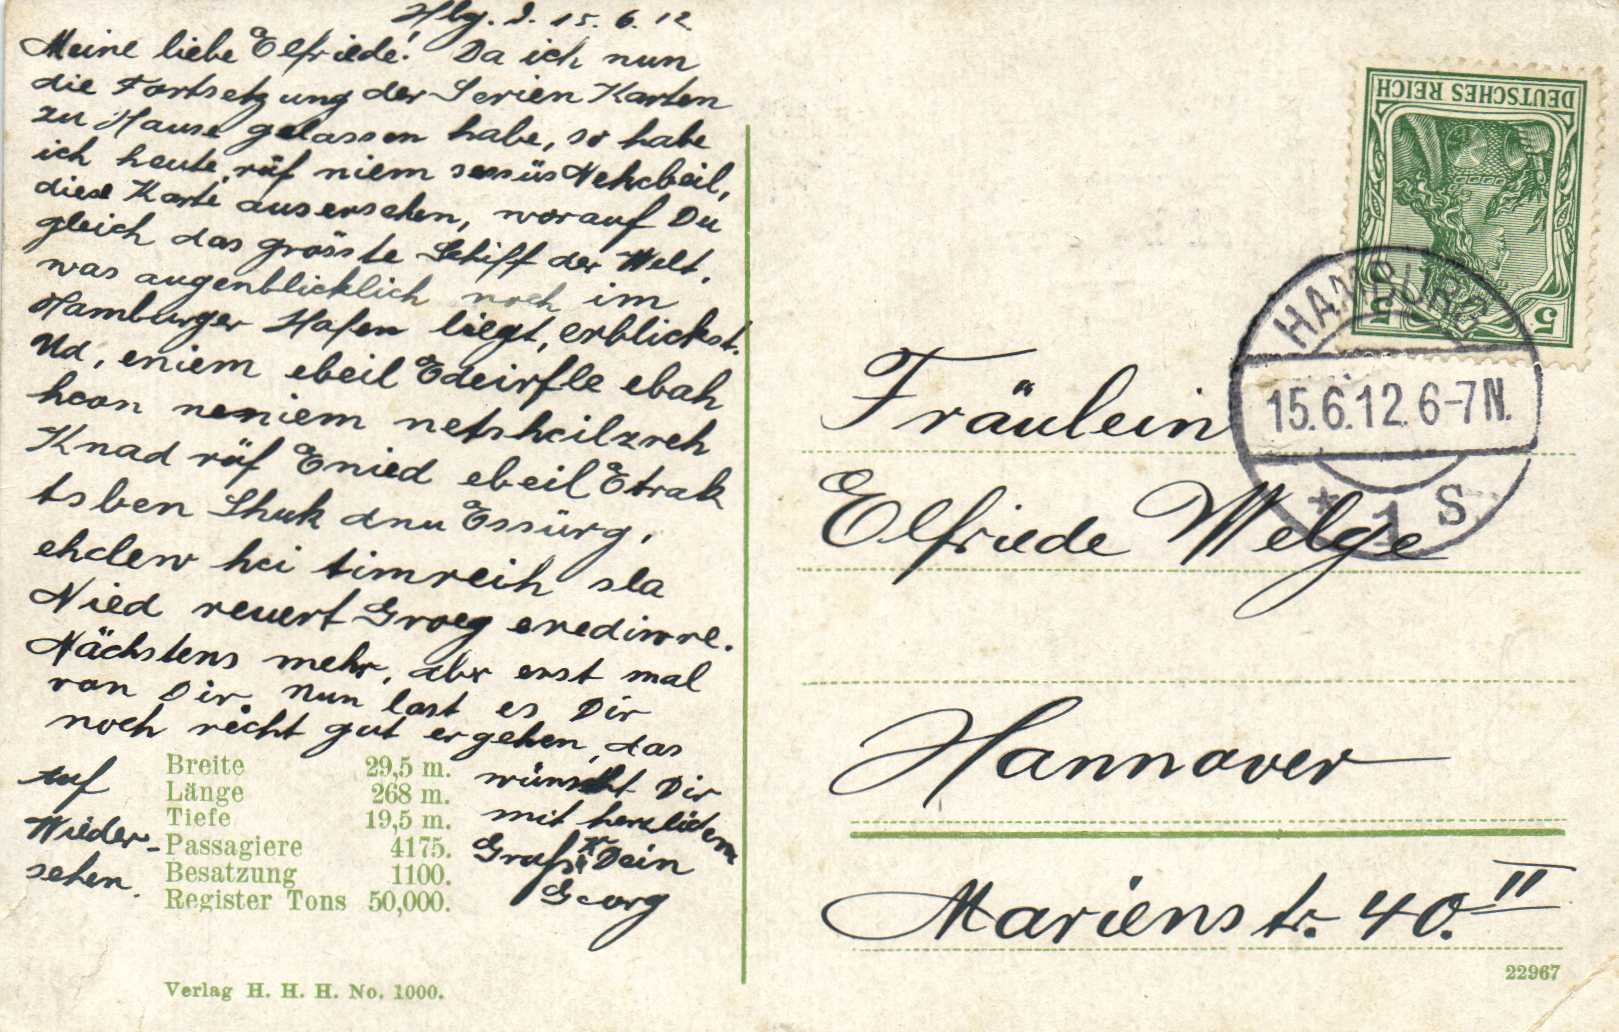 Hbg. d. 15. 6. 12
Meine liebe Elfriede! Da ich nun
die Fortsetzung der Serien Karten
zu Hause gelassen habe, so habe
ich heute, rüf niem sessüs Nehcbeil,
diese Karte ausersehen, worauf Du
gleich das grösste Schiff der Welt,
was augenblicklich noch im
Hamburger Hafen liegt, erblickst.
Ud, eniem ebeil Edeirfle ebah
hcon neniem netshcilzreh
Knad rüf Enied ebeil Etrak
tsben Shuk dnu Essürg,
ehclew hci timreih sla
Nied reuert Groeg erediwre.
Nächstens mehr, aber erst mal
von Dir. Nun last es Dir
noch recht gut ergehen, das
wünscht Dir
mit herzlichem
Gruß Dein
Georg
Auf
Wieder-
sehen.
Breite 29,5 m.
Länge 268 m.
Tiefe 19,5 m.
Passagiere 4175.
Besatzung 1100.
Register Tons 50,000.
Verlag H. H. H. No. 1000.
DEUTSCHES REICH
5 5
HAMBURG
15.6.12.6-7N.
* 1 S
Fräulein
Elfriede Welge
Hannover
Marienstr. 40. II
22967